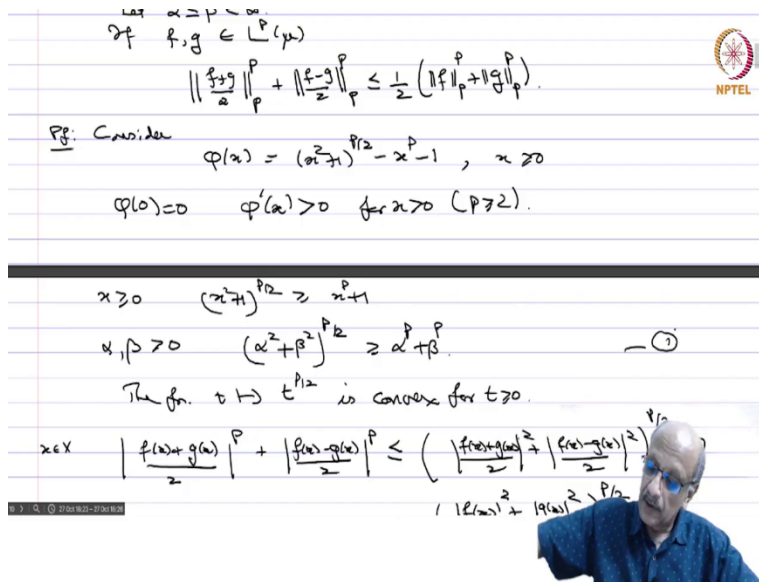 Let 2 ≤ p < ∞.
If f, g ∈ L^p(μ)
‖(f+g)/2‖_p^p + ‖(f-g)/2‖_p^p ≤ 1/2 (‖f‖_p^p + ‖g‖_p^p).
NPTEL
Pf: Consider
φ(x) = (x²+1)^{p/2} - x^p - 1 , x ≥ 0
φ(0)=0 φ'(x) > 0 for x>0 (p≥2).
x ≥ 0 (x²+1)^{p/2} ≥ x^p+1
α, β > 0 (α²+β²)^{p/2} ≥ α^p+β^p. — ①
The fn. t ↦ t^{p/2} is convex for t≥0.
x∈X |(f(x)+g(x))/2|^p + |(f(x)-g(x))/2|^p ≤ (|(f(x)+g(x))/2|² + |(f(x)-g(x))/2|²)^{p/2}
( |f(x)|² + |g(x)|² )^{p/2}
27 Oct 16:23 – 27 Oct 16:26